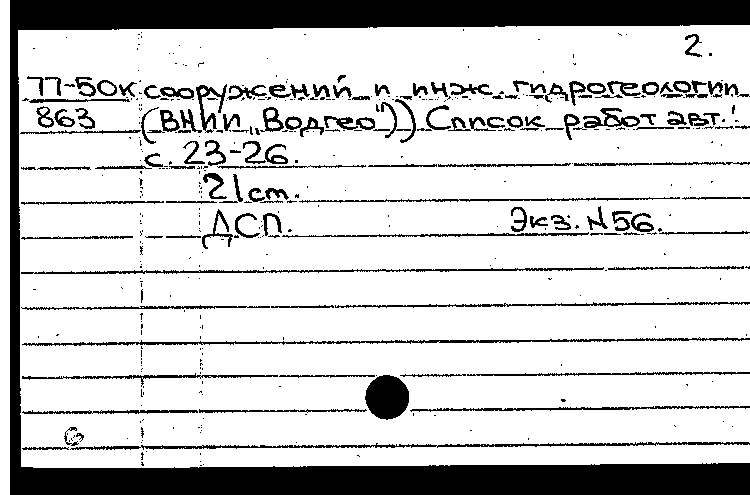 2.
77-50к сооружений и инж. гидрогеологии
863 (ВНИИ „Водгео")) Список работ авт.:
с. 23-26.
21 ст.
ДСП. Экз. №56.
6